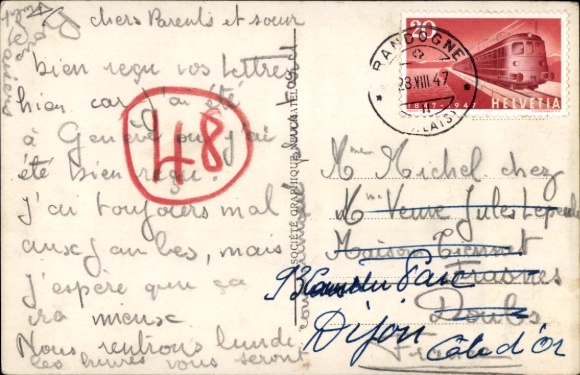 chers Parents et soeur
bien reçu vos lettres
hier car j'ai été
à Genève ou j'ai
été bien reçu.
j'ai toujours mal
aux jambes, mais
j'espère que ça
ira mieux
Nous rentrons lundi
les heures vous seront
48
SOCIÉTÉ GRAPHIQUE NEUCHÂTEL
20
1847-1947
HELVETIA
RANDOGNE
28.VIII.47
(VALAIS)
Mme Michel chez
Mme Veuve Jules
Maison
Frasnes
93 Cours du Parc
Doubs
Dijon
Côte d'Or
France